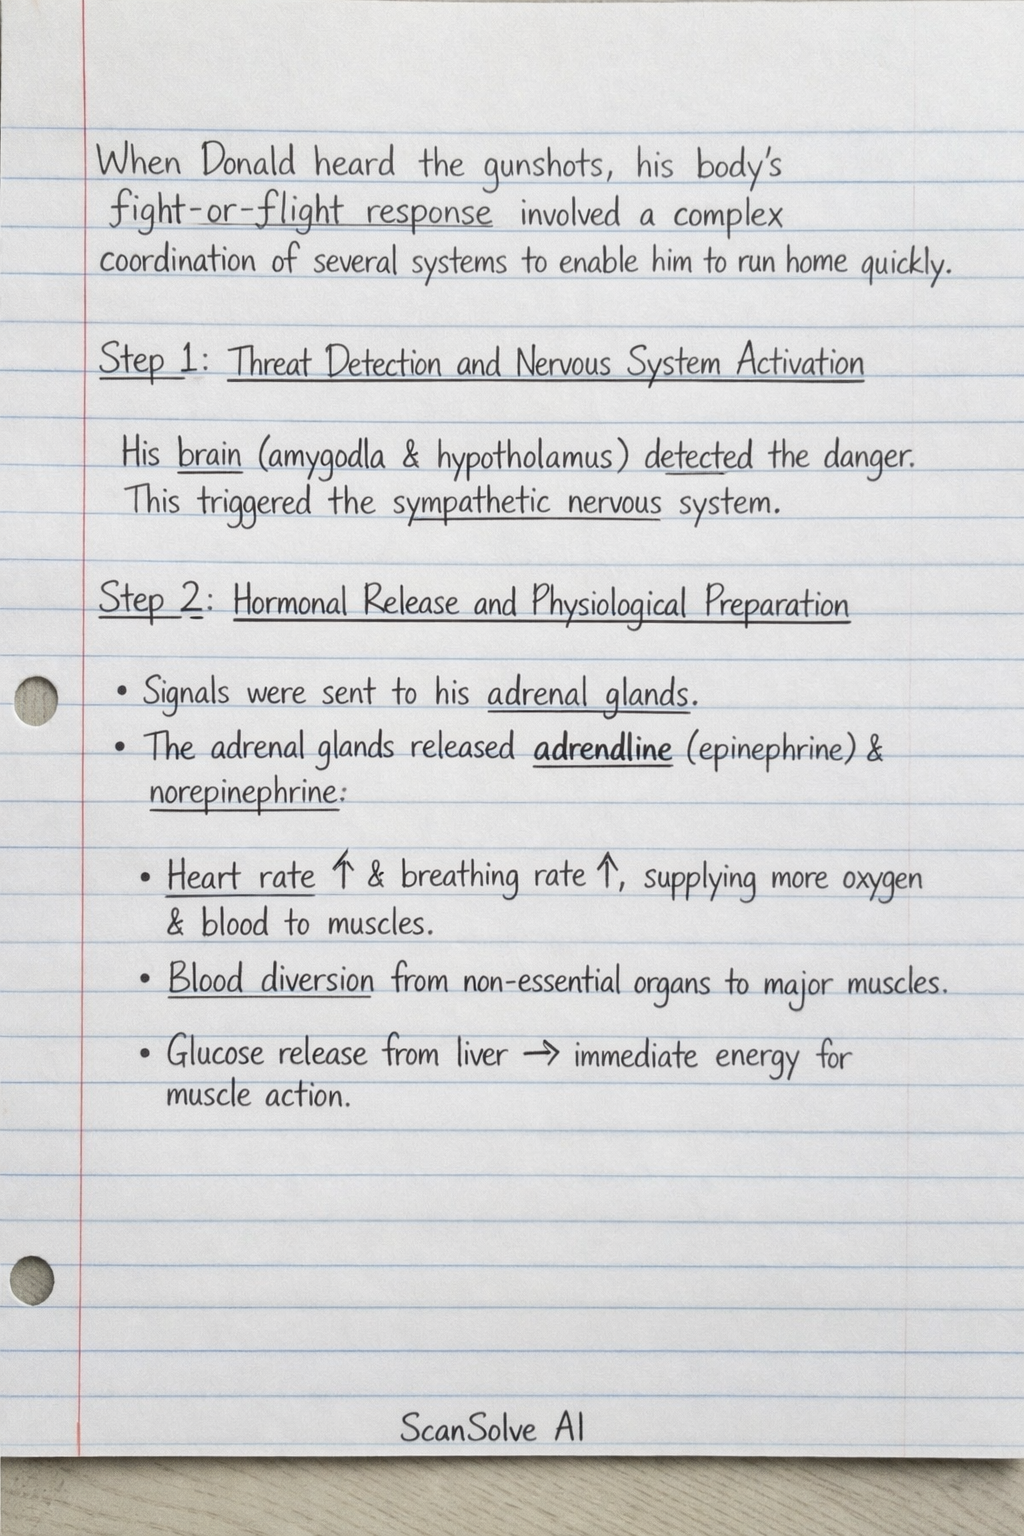 When Donald heard the gunshots, his body's
fight-or-flight response involved a complex
coordination of several systems to enable him to run home quickly.
Step 1: Threat Detection and Nervous System Activation
His brain (amygodla & hypotholamus) detected the danger.
This triggered the sympathetic nervous system.
Step 2: Hormonal Release and Physiological Preparation
• Signals were sent to his adrenal glands.
• The adrenal glands released adrendline (epinephrine) &
norepinephrine:
• Heart rate ↑ & breathing rate ↑, supplying more oxygen
& blood to muscles.
• Blood diversion from non-essential organs to major muscles.
• Glucose release from liver → immediate energy for
muscle action.
ScanSolve AI